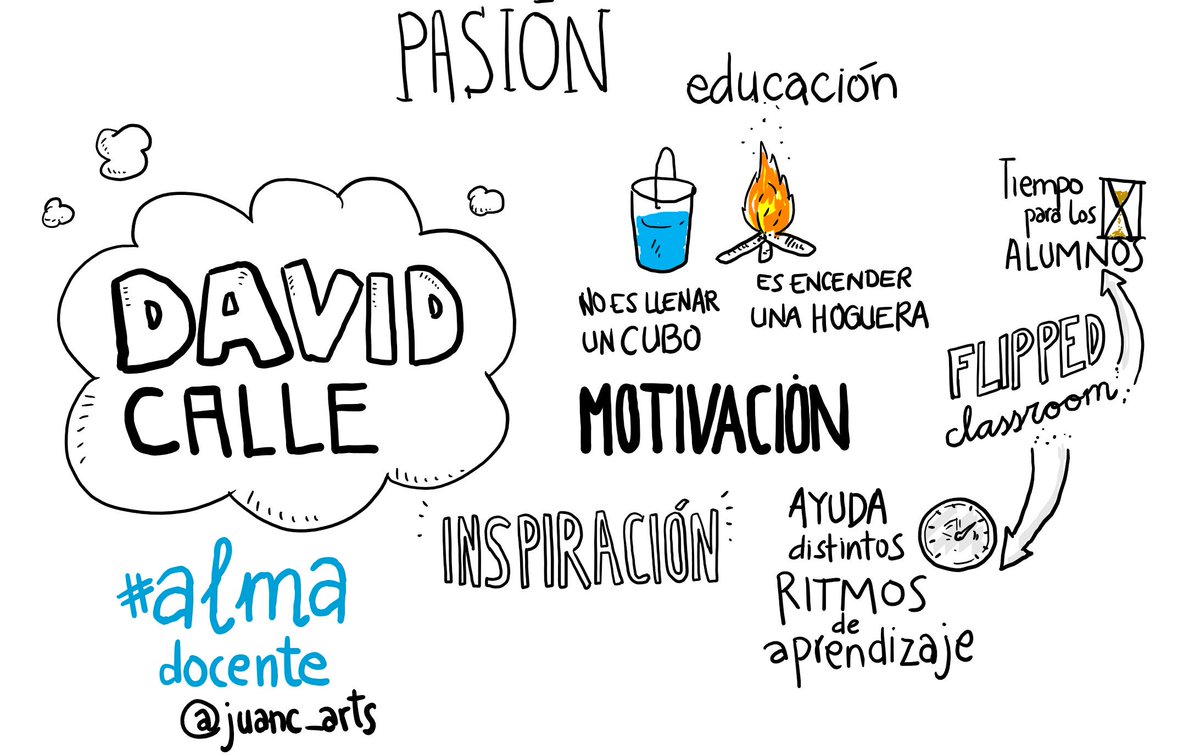 PASIÓN
educación
DAVID
CALLE
NO ES LLENAR
UN CUBO
ES ENCENDER
UNA HOGUERA
MOTIVACIÓN
INSPIRACIÓN
Tiempo
para los
ALUMNOS
FLIPPED
classroom
AYUDA
distintos
RITMOS
de
aprendizaje
#alma
docente
@juanc_arts